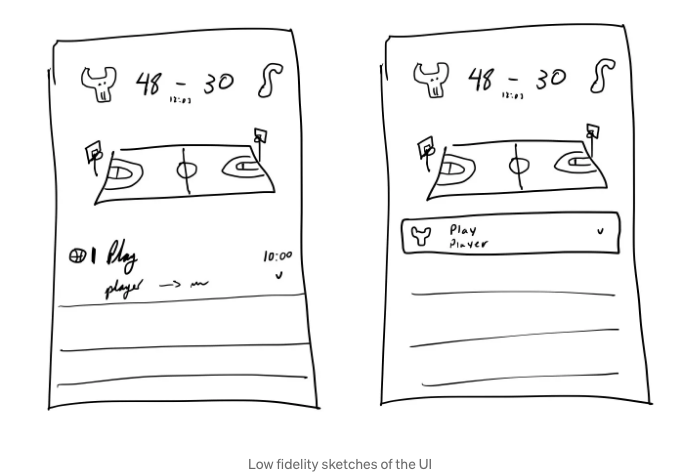 48 - 30
12:03
Play
10:00
player →
48 - 30
12:03
Play
Player
Low fidelity sketches of the UI